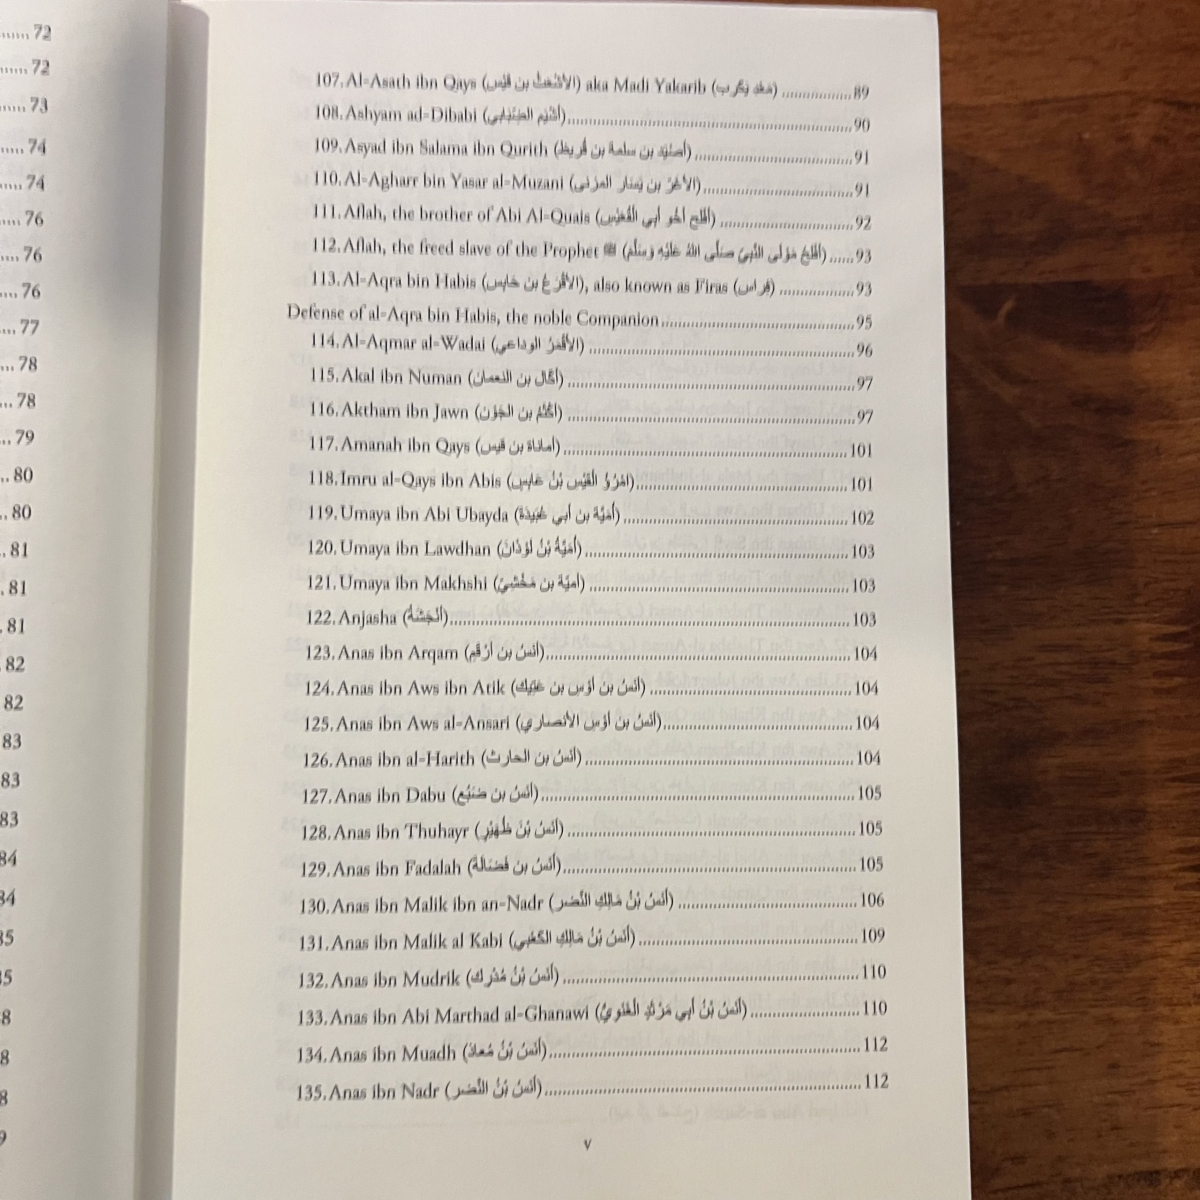 ...... 72
...... 72
..... 73
..... 74
..... 74
.... 76
.... 76
.... 76
.... 77
... 78
... 78
... 79
.. 80
.. 80
. 81
. 81
. 81
82
82
83
83
83
84
107. Al-Asath ibn Qays (الأشعث بن قيس) aka Madi Yakarib (معد يكرب) ................ 89
108. Ashyam ad-Dibabi (أشيم الضبابي) ................ 90
109. Asyad ibn Salama ibn Qurith (أصيد بن سلمة بن قريظ) ................ 91
110. Al-Agharr bin Yasar al-Muzani (الأغر بن يسار المزني) ................ 91
111. Aflah, the brother of Abi Al-Quais (أفلح أخو أبي القعيس) ................ 92
112. Aflah, the freed slave of the Prophet ﷺ (أفلح مولى النبي صلى الله عليه وسلم) ...... 93
113. Al-Aqra bin Habis (الأقرع بن حابس), also known as Firas (فراس) ................ 93
Defense of al-Aqra bin Habis, the noble Companion ................ 95
114. Al-Aqmar al-Wadai (الأقمر الوداعي) ................ 96
115. Akal ibn Numan (أكال بن النعمان) ................ 97
116. Aktham ibn Jawn (أكثم بن الجون) ................ 97
117. Amanah ibn Qays (أماناة بن قيس) ................ 101
118. Imru al-Qays ibn Abis (امرؤ القيس بن عابس) ................ 101
119. Umaya ibn Abi Ubayda (أمية بن أبي عبيدة) ................ 102
120. Umaya ibn Lawdhan (أمية بن لوذان) ................ 103
121. Umaya ibn Makhshi (أمية بن مخشي) ................ 103
122. Anjasha (أنجشة) ................ 103
123. Anas ibn Arqam (أنس بن أرقم) ................ 104
124. Anas ibn Aws ibn Atik (أنس بن أوس بن عتيك) ................ 104
125. Anas ibn Aws al-Ansari (أنس بن أوس الأنصاري) ................ 104
126. Anas ibn al-Harith (أنس بن الحارث) ................ 104
127. Anas ibn Dabu (أنس بن ضبع) ................ 105
128. Anas ibn Thuhayr (أنس بن ظهير) ................ 105
129. Anas ibn Fadalah (أنس بن فضالة) ................ 105
130. Anas ibn Malik ibn an-Nadr (أنس بن مالك النضر) ................ 106
131. Anas ibn Malik al Kabi (أنس بن مالك الكعبي) ................ 109
132. Anas ibn Mudrik (أنس بن مدرك) ................ 110
133. Anas ibn Abi Marthad al-Ghanawi (أنس بن أبي مرثد الغنوي) ................ 110
134. Anas ibn Muadh (أنس بن معاذ) ................ 112
135. Anas ibn Nadr (أنس بن النضر) ................ 112
v